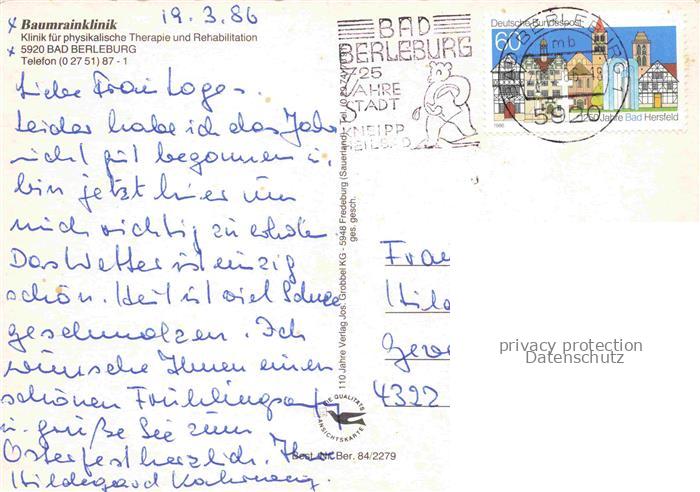 19.3.86
x Baumrainklinik
Klinik für physikalische Therapie und Rehabilitation
x 5920 BAD BERLEBURG
Telefon (0 27 51) 87 - 1
Liebe Frau Loges.
Leider habe ich das Jahr
nicht gut begonnen u.
bin jetzt hier um
mich richtig zu erholen
Das Wetter ist einzig
schön. Heut ist viel Schnee
geschmolzen. Ich
wünsche Ihnen einen
schönen Frühlingsanf
u. grüße Sie zum
Osterfest herzlich. Ihre
Hildegard
BAD
BERLEBURG
725
JAHRE
STADT
KNEIPP
HEILBAD
Deutsche Bundespost
60
1250 Jahre Bad Hersfeld
1986
BERLEBURG
mb
5920
110 Jahre Verlag Jos. Grobbel KG - 5948 Fredeburg (Sauerland)
ges. gesch.
DIE QUALITÄTS
ANSICHTSKARTE
Best.-Nr. Ber. 84/2279
Frau
Hild
4322
privacy protection
Datenschutz